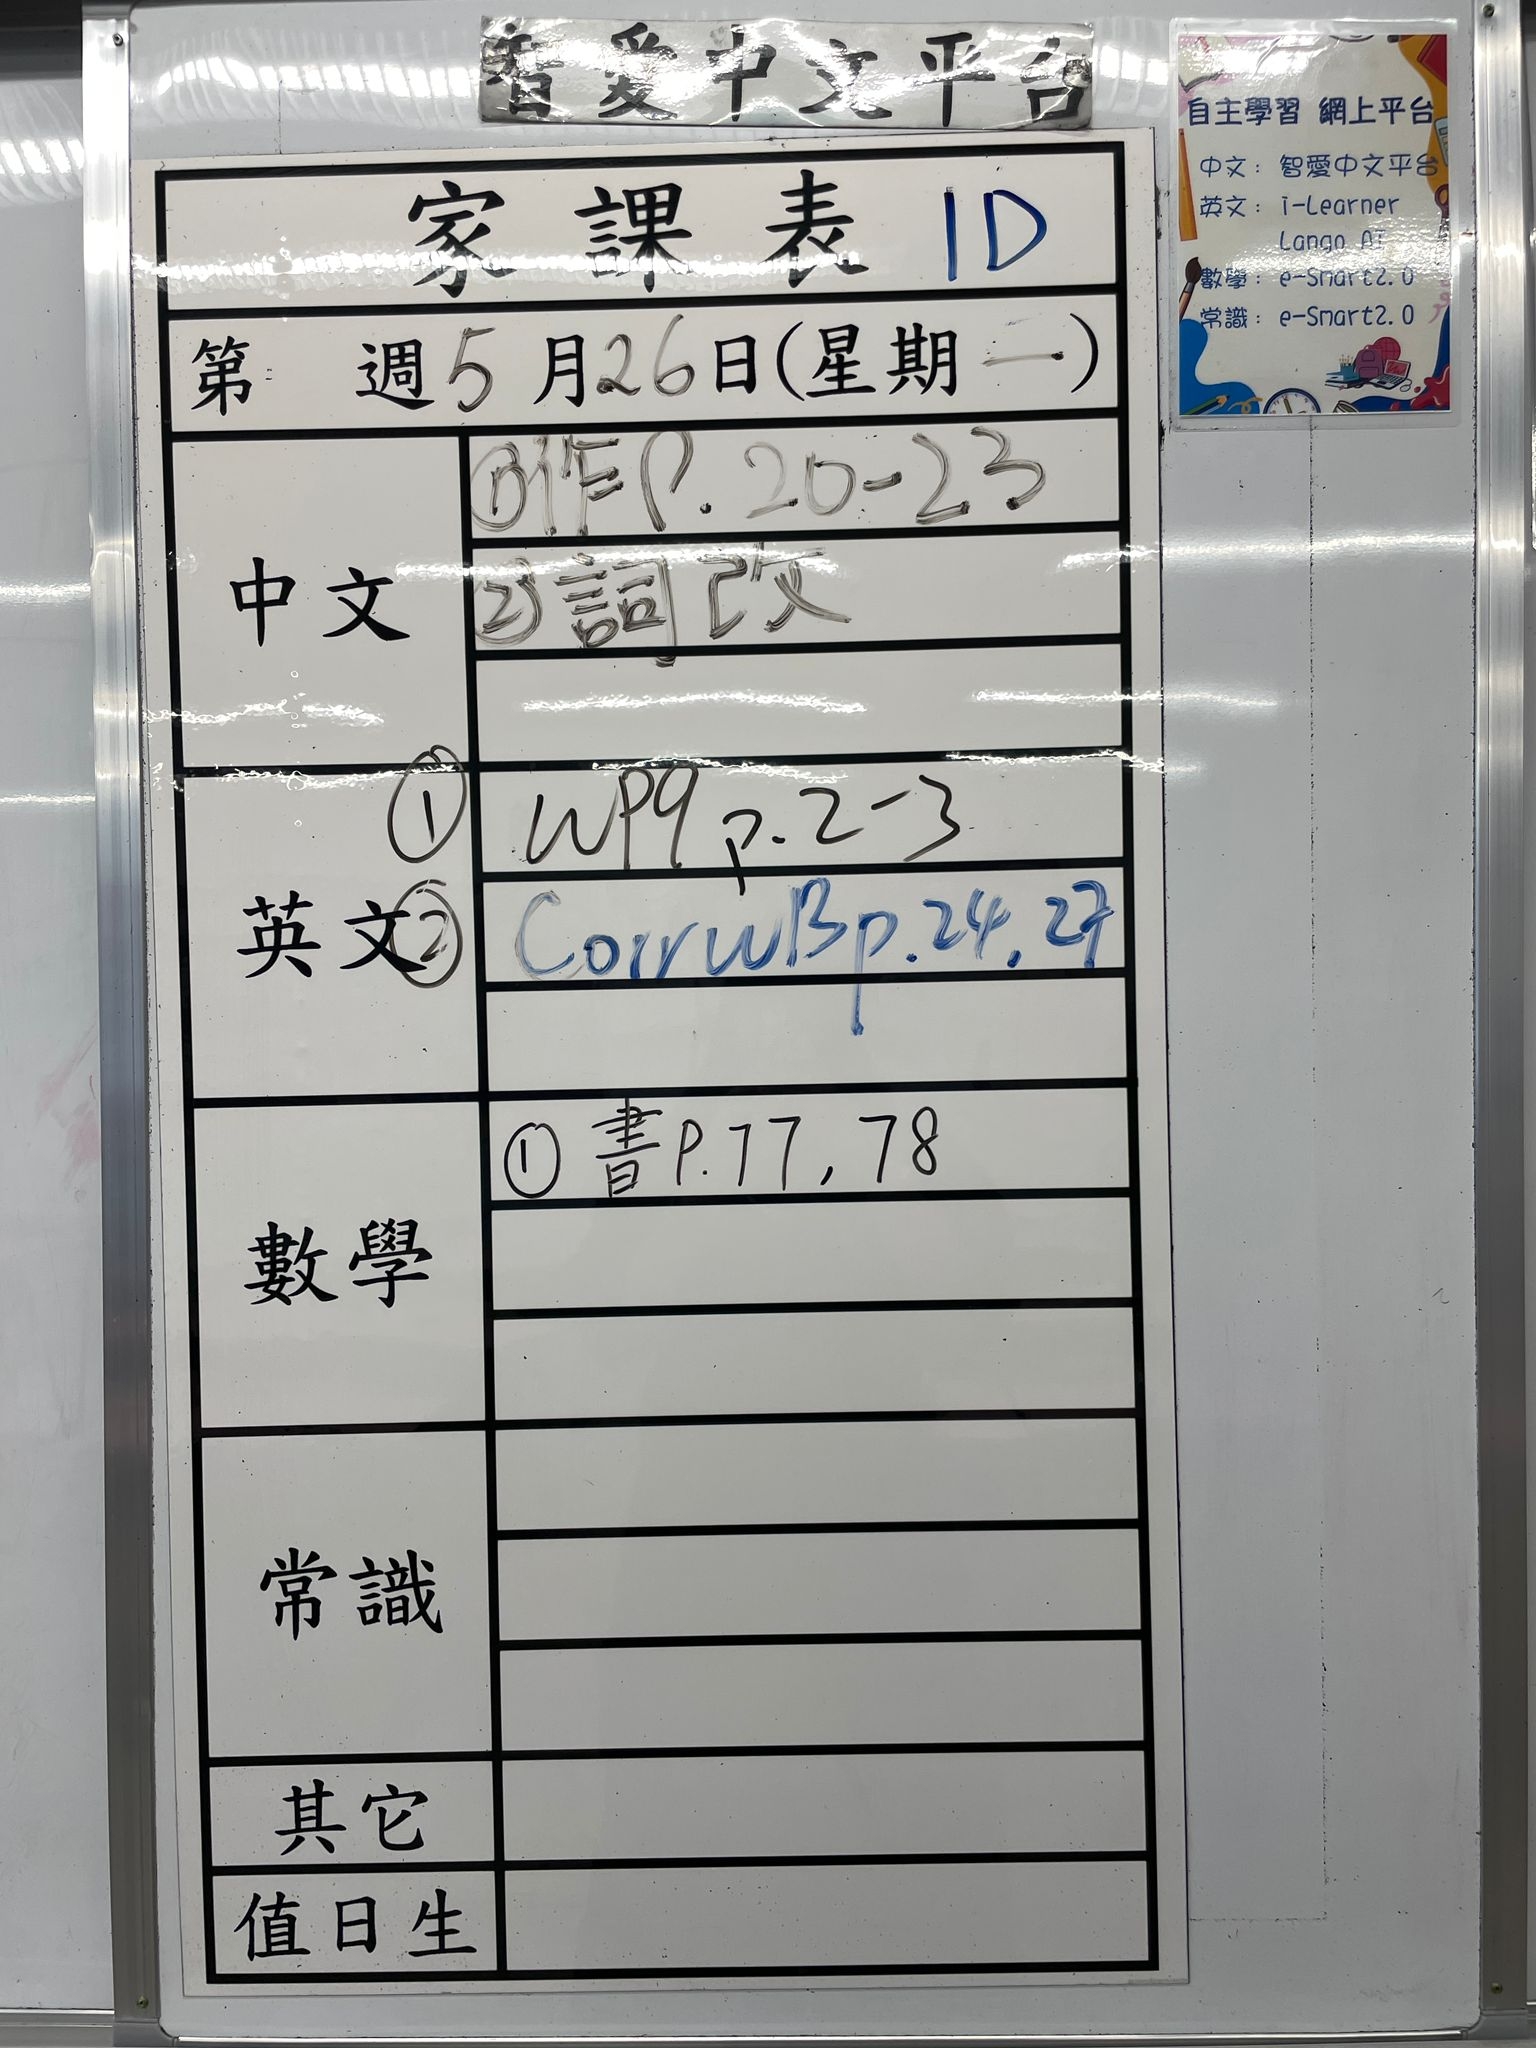 智愛中文平台
自主學習 網上平台
中文：智愛中文平台
英文：i-Learner
Lango AI
數學：e-Smart2.0
常識：e-Smart2.0
家課表 1D
第 週 5月26日(星期一)
中文
①作P.20-23
②詞改
英文
① WP9 p.2-3
② Corr WB p.24, 27
數學
① 書P.77, 78
常識
其它
值日生